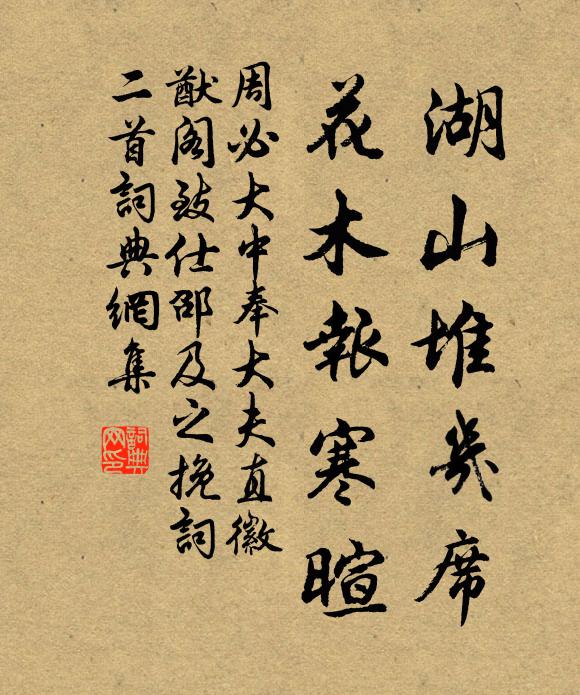 湖山堆几席
花木報寒暄
周必大中奉大夫直徽
猷阁致仕邵及之挽詞
二首詞典網集
詞典网印